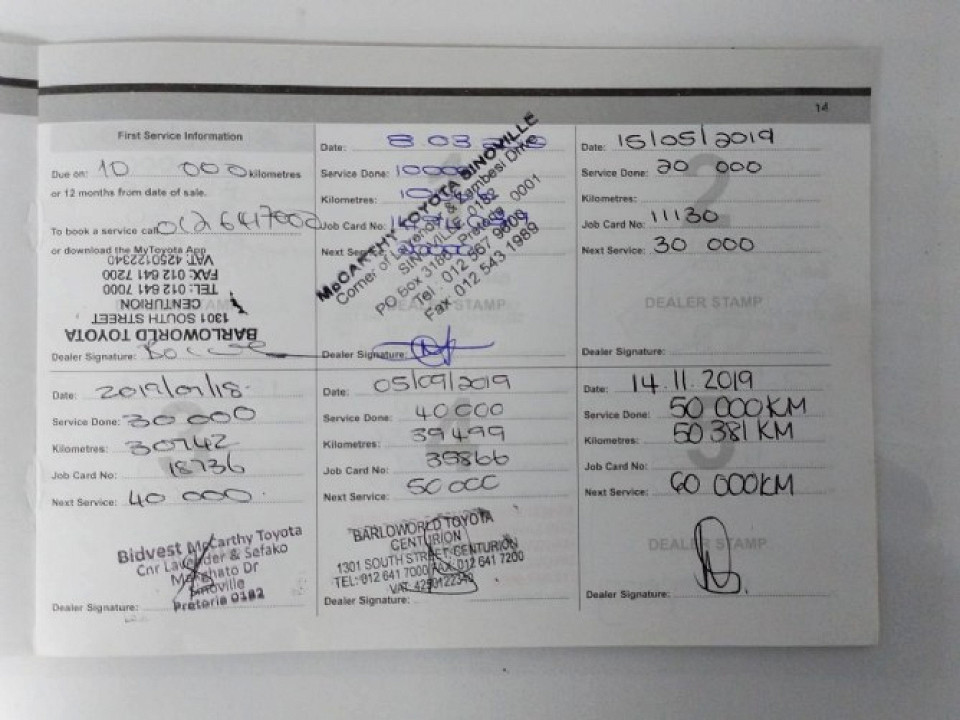 14
First Service Information
Due on: 10 000 kilometres
or 12 months from date of sale.
To book a service call 012 6417000
or download the MyToyota App
BARLOWORLD TOYOTA
1301 SOUTH STREET
CENTURION
TEL: 012 641 7000
FAX: 012 641 7200
VAT. 4250122340
Dealer Signature:
Date: 8.03
Service Done:
Kilometres:
Job Card No:
Next Service:
McCARTHY TOYOTA SINOVILLE
Corner of Lavender & Zambesi Drive
SINOVILLE 0182
PO Box Pretoria 0001
Tel: 012 567 9600
Fax: 012 543 1989
Dealer Signature:
Date: 15/05/2019
Service Done: 20 000
Kilometres:
Job Card No: 11130
Next Service: 30 000
2
DEALER STAMP
Dealer Signature:
Date: 2019/07/18
Service Done: 30 000
Kilometres: 30742
Job Card No: 18736
Next Service: 40 000
Bidvest McCarthy Toyota
Cnr Lavender & Sefako
Makghato Dr
Sinoville
Pretoria 0182
Dealer Signature:
Date: 05/09/2019
Service Done: 40 000
Kilometres: 39 499
Job Card No: 39866
Next Service: 50 000
BARLOWORLD TOYOTA
CENTURION
1301 SOUTH STREET CENTURION
TEL: 012 641 7000 FAX: 012 641 7200
VAT 4250122340
Dealer Signature:
Date: 14.11.2019
Service Done: 50 000KM
Kilometres: 50 381 KM
Job Card No:
Next Service: 60 000KM
5
DEALER STAMP
Dealer Signature: